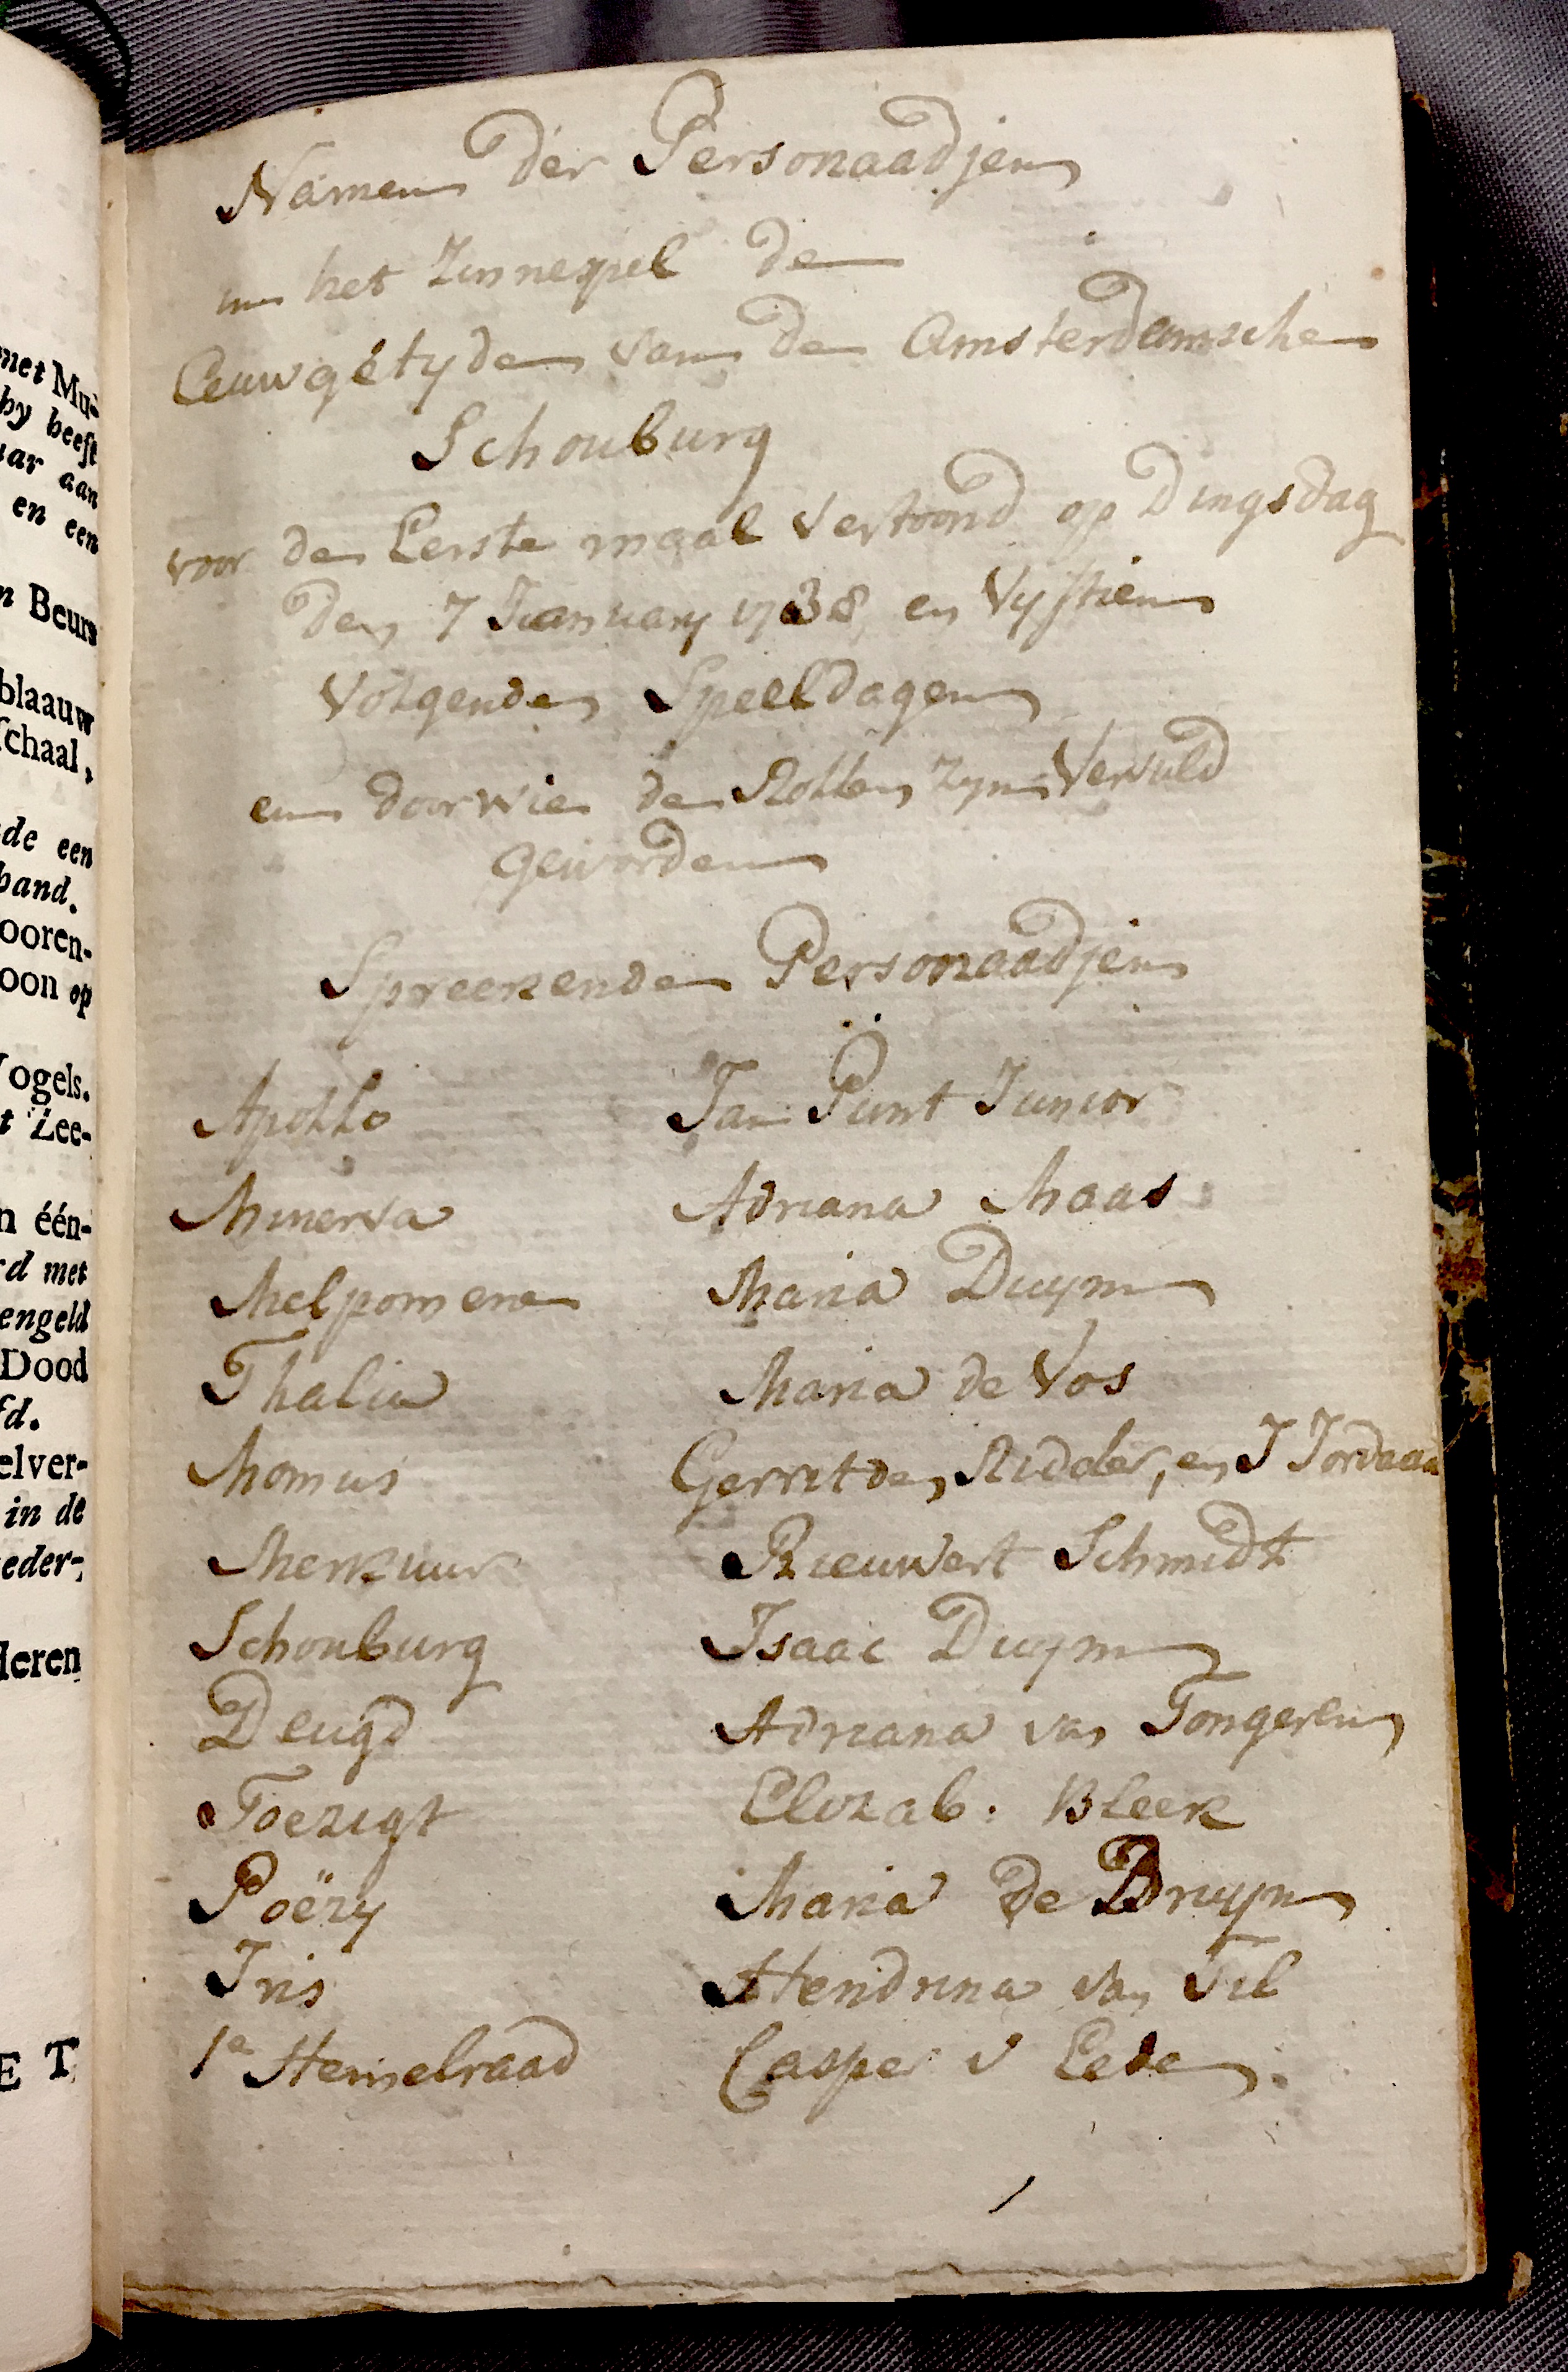 met Mu-
hy heeft
aar aan
en een
n Beurs
blaauw
schaal,
de een
band.
ooren-
oon op
Vogels.
t Zee-
n één-
rd met
engeld
Dood
fd.
elver-
in de
eder-
deren
E T
Namen der Personaadjen
in het Zinnespel de
Eeuwgetyde van de Amsterdamsche
Schouburg
voor de Eerste maal Vertoond op Dingsdag
den 7 January 1738, en Vyftien
Volgende Speeldagen
en door wie de Rollen zyn Vervuld
geworden
Spreekende Personaadjen
Apollo Jan Punt Junior
Minerva Adriana Maas
Melpomene Maria Duym
Thalia Maria de Vos
Momus Gerrit de Ridder, en J Jordaan
Merkuur Rieuwert Schmidt
Schouburg Isaac Duym
Deugd Adriana van Tongeren
Toezigt Elizab. Bleek
Poëzy Maria de Bruyn
Iris Hendrina van Til
1e Hemelraad Casper v Eede.